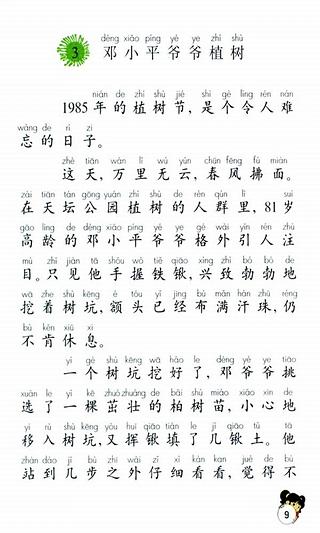 dèng xiǎo píng yé ye zhí shù
3 邓小平爷爷植树
nián de zhí shù jié shì gè lìng rén nán
1985年的植树节，是个令人难
wàng de rì zi
忘的日子。
zhè tiān wàn lǐ wú yún chūn fēng fú miàn
这天，万里无云，春风拂面。
zài tiān tán gōng yuán zhí shù de rén qún lǐ suì
在天坛公园植树的人群里，81岁
gāo líng de dèng xiǎo píng yé ye gé wài yǐn rén zhù
高龄的邓小平爷爷格外引人注
mù zhǐ jiàn tā shǒu wò tiě qiāo xìng zhì bó bó de
目。只见他手握铁锹，兴致勃勃地
wā zhe shù kēng é tóu yǐ jīng bù mǎn hàn zhū réng
挖着树坑，额头已经布满汗珠，仍
bù kěn xiū xi
不肯休息。
yí gè shù kēng wā hǎo le dèng yé ye tiāo
一个树坑挖好了，邓爷爷挑
xuǎn le yì kē zhuó zhuàng de bǎi shù miáo xiǎo xīn de
选了一棵茁壮的柏树苗，小心地
yí rù shù kēng yòu huī qiāo tián le jǐ qiāo tǔ tā
移入树坑，又挥锹填了几锹土。他
zhàn dào jǐ bù zhī wài zǐ xì kàn kan jué de bù
站到几步之外仔细看看，觉得不
9